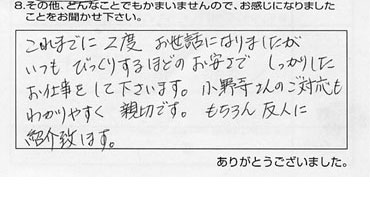 8.その他、どんなことでもかまいませんので、お感じになりました
ことをお聞かせ下さい。
これまでに 2度 お世話になりましたが
いつも びっくりするほどのお安さで しっかりした
お仕事をして下さいます。小野寺さんのご対応も
わかりやすく 親切です。もちろん 友人に
紹介致します。
ありがとうございました。